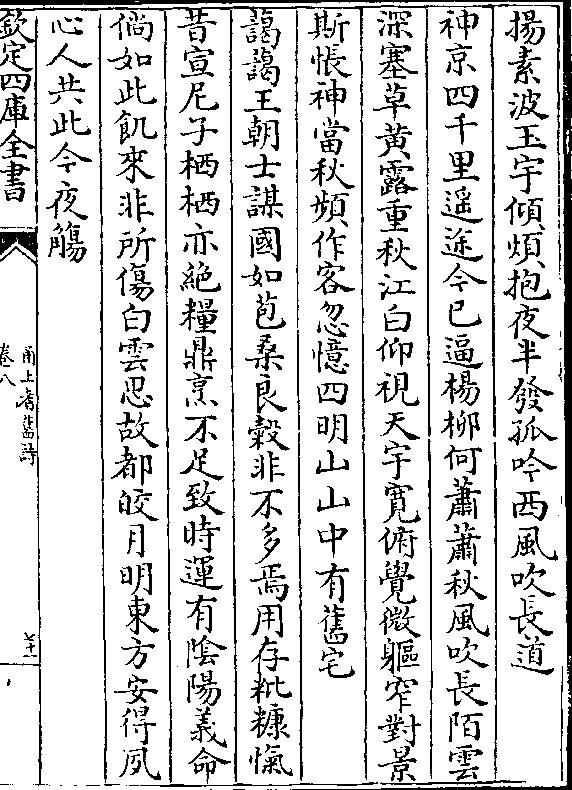 揚素波玉宇傾煩抱夜半發孤吟西風吹長道
神京四千里遥途今已逼楊柳何蕭蕭秋風吹長陌雲
深塞草黄露重秋江白仰視天宇寛俯覺微軀窄對景
斯悵神當秋頻作客忽憶四明山山中有舊宅
藹藹王朝士謀國如苞桑良糓非不多焉用存粃糠愾
昔宣尼子栖栖亦絶糧鼎烹不足致時運有隂陽義命
倘如此飢來非所傷白雲思故都皎月明東方安得夙
心人共此今夜觴
欽定四庫全書
甬上耆舊詩
卷八
七十一